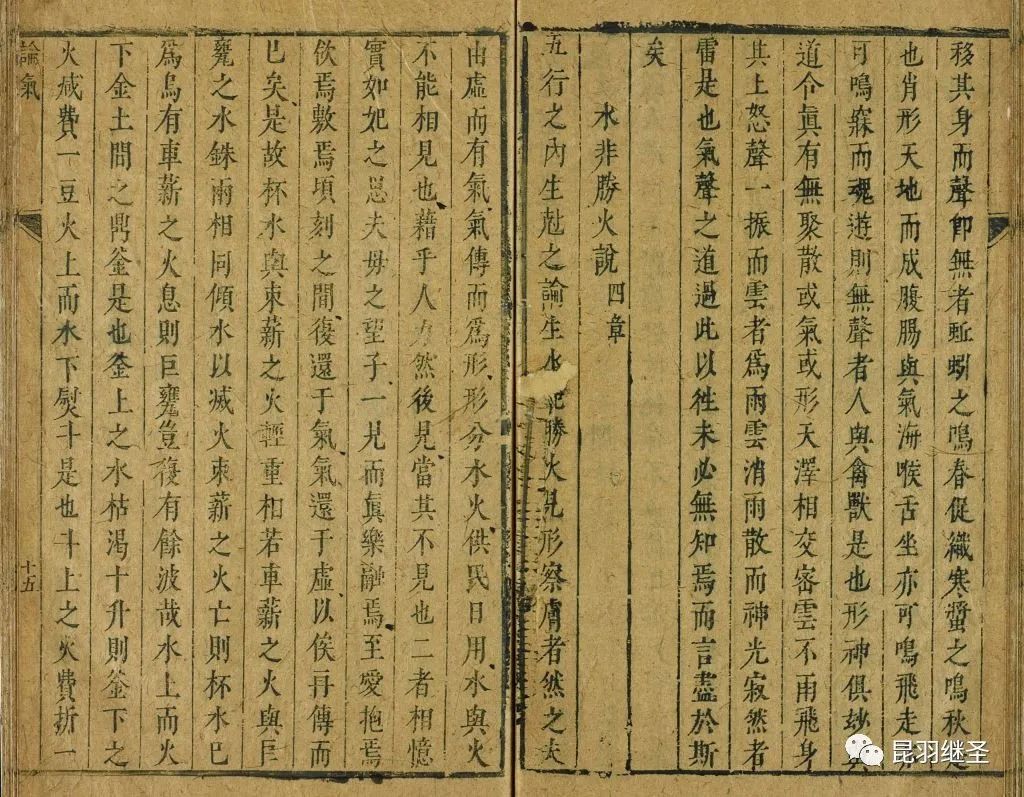 移其身而聲卽無者蚯蚓之鳴春促織寒螿之鳴秋是
也肖形天地而成腹腸與氣海喉舌坐亦可鳴飛走亦
可鳴寐而魂遊則無聲者人與禽獸是也形神俱妙與
道合眞有無聚散或氣或形天澤相交密雲不雨飛身
其上怒聲一振而雲者爲雨雲消雨散而神光寂然者
雷是也氣聲之道過此以徃未必無知焉而言盡於斯
矣
水非勝火說四章
五行之內生尅之論生水尅勝火見形察膚者然之夫
由虛而有氣氣傳而爲形形分水火供民日用水與火
不能相見也藉乎人力然後見當其不見也二者相憶
實如妃之思夫母之望子一見而眞樂融焉至愛抱焉
飲焉敷焉頃刻之間復還于氣氣還于虛以俟再傳而
已矣是故杯水與束薪之火輕重相若車薪之火與巨
甕之水銖兩相同傾水以滅火束薪之火亡則杯水已
爲烏有車薪之火息則巨甕豈復有餘波哉水上而火
下金土間之鼎釜是也釜上之水枯渴十升則釜下之
火減費一豆火上而水下熨斗是也斗上之火費折一
論氣
十五
昆羽继圣